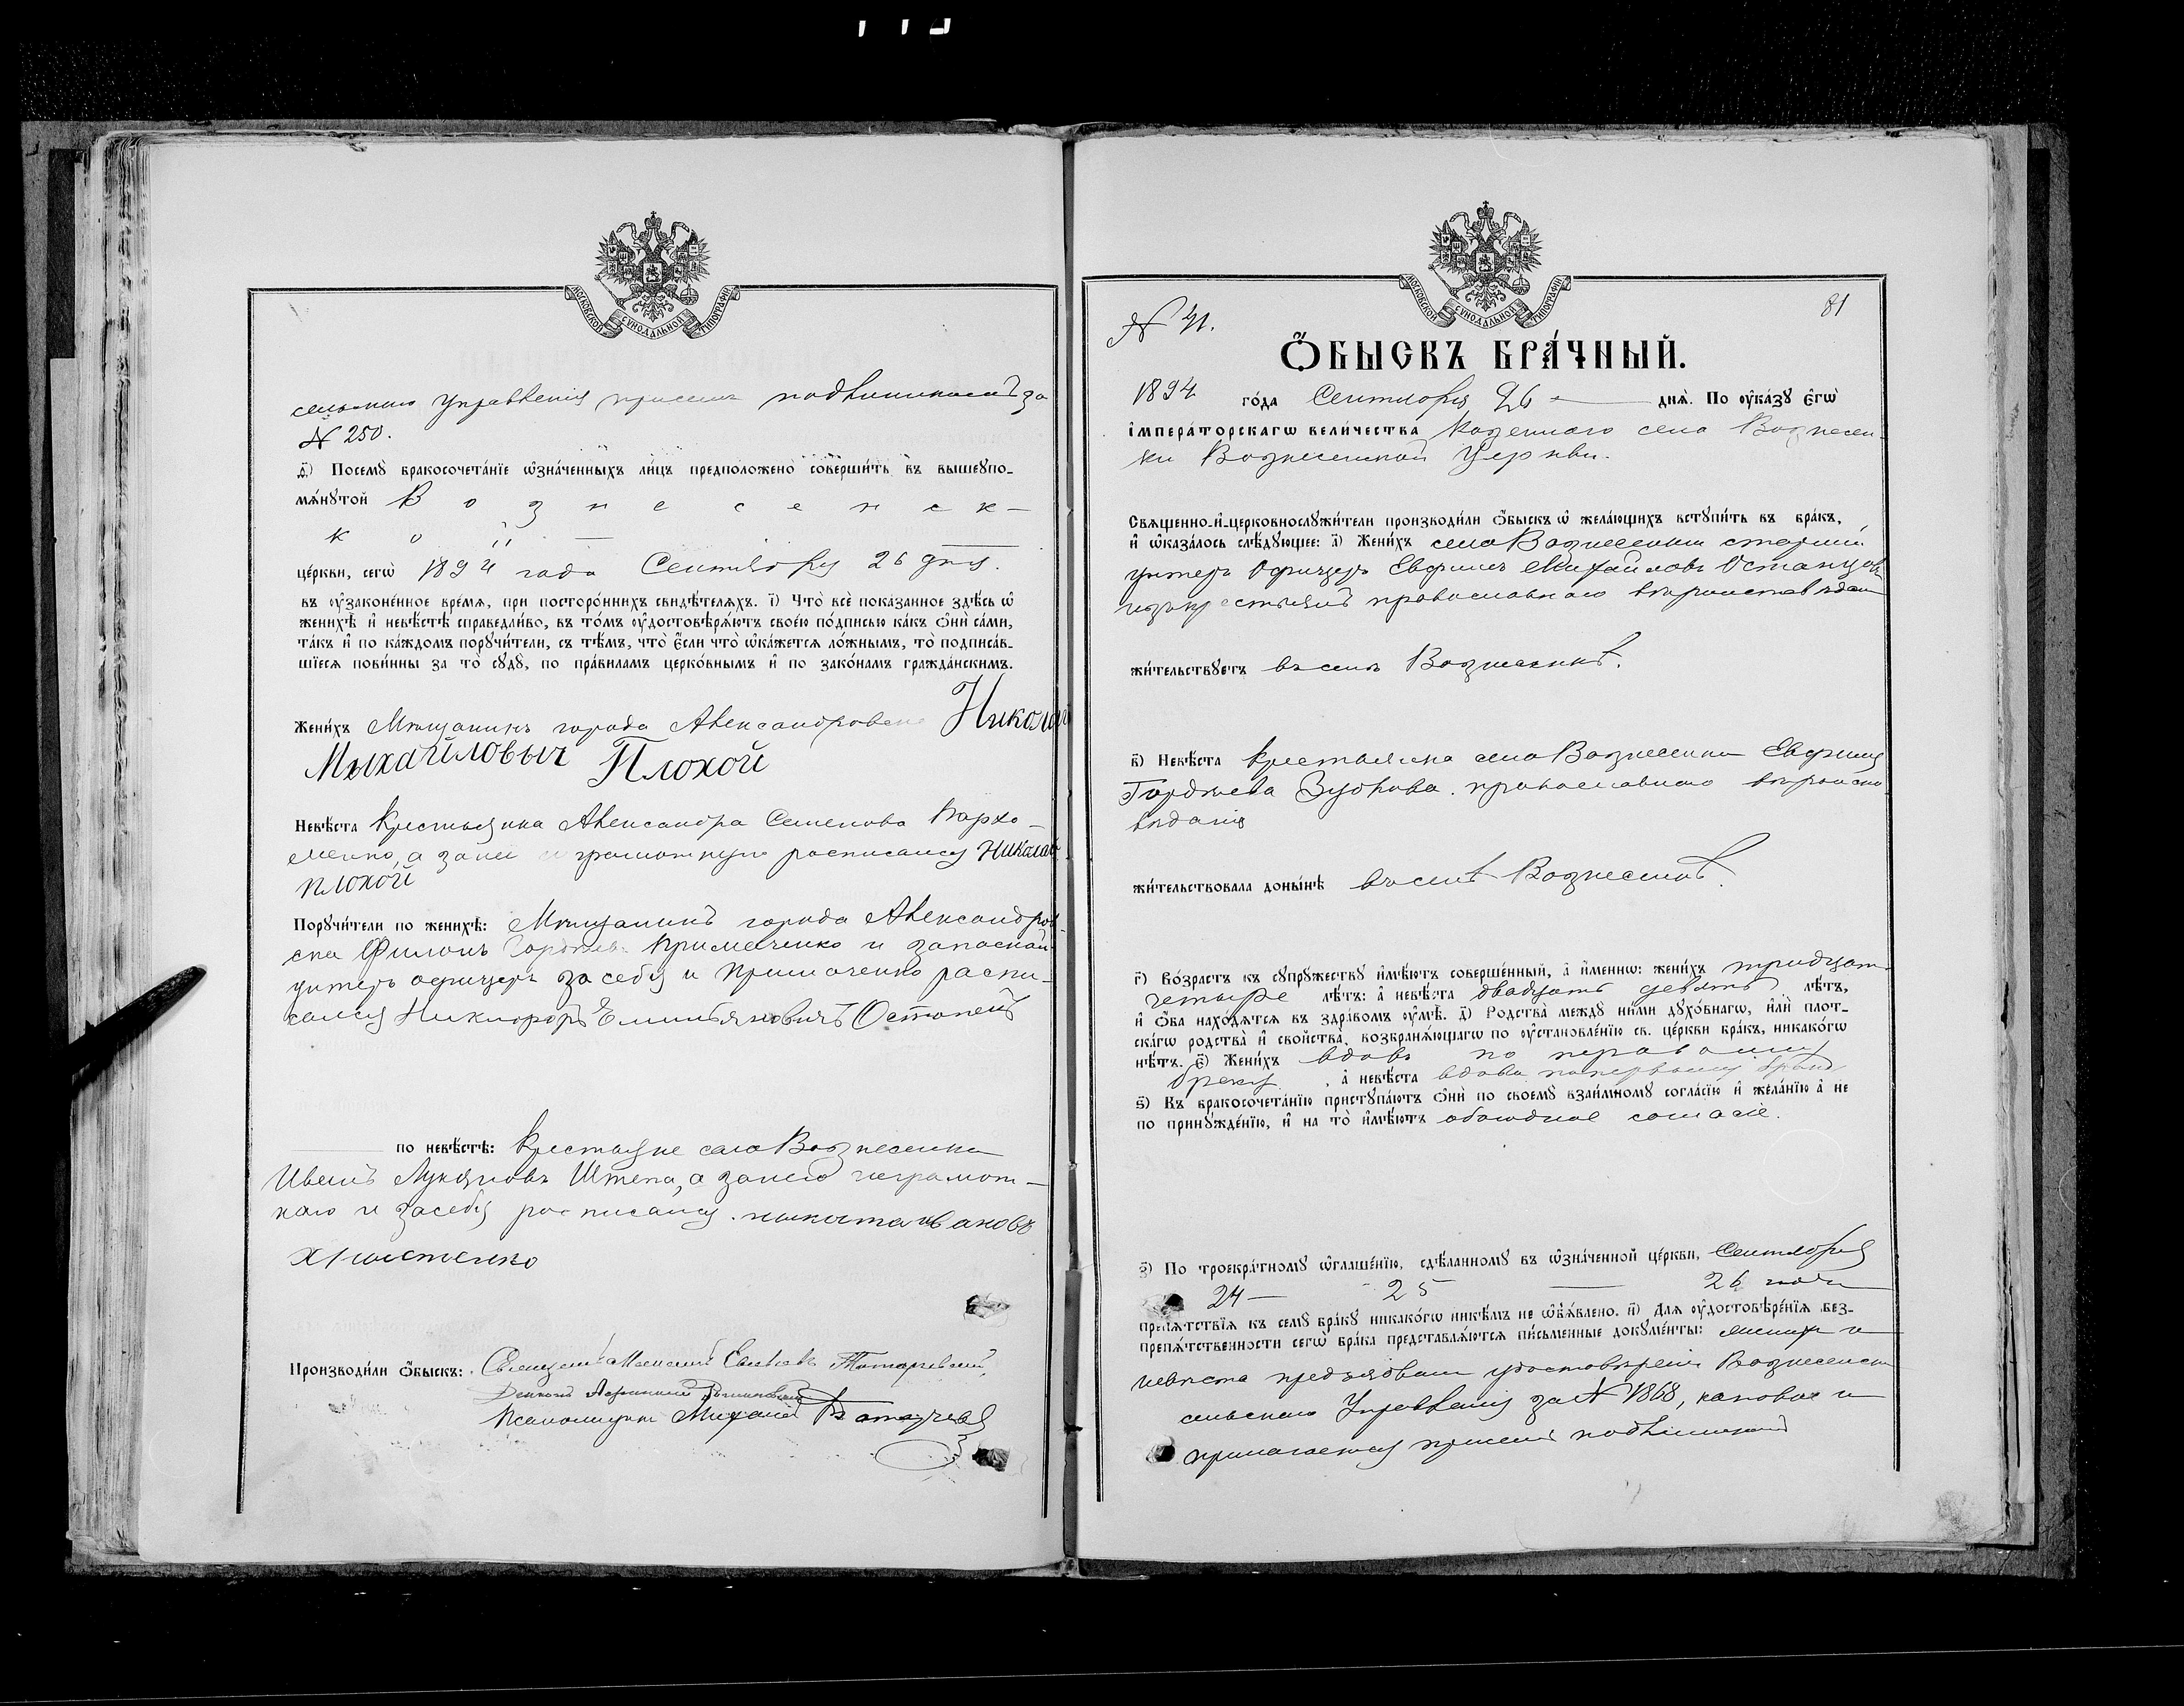 МОСКОВСКОЙ СѴНОДАЛЬНОЙ ТИПОГРАФІИ
сельскаго Управленія при семъ подшиваетъ за
№ 250.
Посемꙋ бракосочета́нїе ѡ҆зна́ченныхъ ли́цъ предположено̀ соверши́ть въ вышеꙋпо-
мѧ́нꙋтой В о з н е с е н с к –
к о й
це́ркви, сегѡ̀ 1894 года Сентября 26 дня.
въ ᲂу҆зако́нённое вре́мѧ, при посторо́ннихъ свидѣ́телѧхъ. і҃) Что̀ всѐ пока́занное здѣ́сь ѡ҆
женихѣ̀ и҆ невѣ́стѣ справедли́во, въ то́мъ ᲂу҆достовѣрѧ́ютъ свое́ю по́дписью ка́къ ѻ҆нѝ са́ми,
та́къ и҆ по ка́ждомъ порꙋчи́тели, съ тѣ́мъ, что̀ є҆́сли что̀ ѡ҆ка́жетсѧ ло́жнымъ, то̀ подписа́в-
шїесѧ пови́нны за то̀ сꙋдꙋ̀, по пра́виламъ церко́внымъ и҆ по зако́намъ гражда́нскимъ.
Жени́хъ Мѣщанинъ города Александровска Николай
Мыхайловыч Плохой
Невѣ́ста Крестьянка Александра Семенова Пархо-
менко, а за неё неграмотную росписался Николай
Плохой
Порꙋчи́тели по женихѣ̀: Мѣщанинъ города Александров-
ска Филонъ Примаченко и запасный
унтеръ офицеръ за себя и Примаченко распи-
сался Никифоръ Емильяновичъ Остапецъ
по невѣ́стѣ: Крестьяне села Вознесенки
Иванъ Лукьяновъ Штепа, а за него неграмот-
наго и за себя росписался
Производи́ли ѻ҆́быскъ: Священникъ
Псаломщикъ Михаилъ
МОСКОВСКОЙ СѴНОДАЛЬНОЙ ТИПОГРАФІИ
81
№ 41.
Ѻ҆́БЫСКЪ БРА́ЧНЫЙ.
1894 го́да Сентября 26 днѧ̀. По ᲂу҆ка́зꙋ є҆гѡ̀
і҆мпера́торскагѡ вели́чества Казеннаго села Вознесен-
ки Вознесенской Церкви.
Свѧщенно-и҆-церковнослꙋжи́тели производи́ли ѻ҆́быскъ ѡ҆ жела́ющихъ встꙋпи́ть въ бра́къ,
и҆ ѡ҆каза́лось слѣ́дꙋющее: а҃) Жени́хъ села Вознесенки старший
унтеръ Офицеръ Евфимъ Михайловъ Останцовъ
изъ крестьянъ православнаго вѣроисповѣдан
жи́тельствꙋетъ въ селѣ Вознесенкѣ.
в҃) Невѣ́ста Крестьянка села Вознесенки Евфимія
Гордѣева Зубкова. православнаго вѣроиспо
вѣданія
жи́тельствовала доны́нѣ въ селѣ Вознесенкѣ.
г҃) Во́зрастъ къ сꙋпрꙋ́жествꙋ и҆мѣ́ютъ соверше́нный, а҆ и҆́меннѡ: жени́хъ тридцать
четыре лѣ́тъ: а҆ невѣ́ста двадцать девять лѣ́тъ,
и҆ ѻ҆́ба нахо́дѧтсѧ въ здра́вомъ ᲂу҆мѣ̀. д҃) Родства̀ междꙋ ни́ми дꙋхо́внагѡ, и҆лѝ плот-
ска́гѡ родства̀ и҆ сво́йства, возбранѧ́ющагѡ по ᲂу҆становле́нїю св. це́ркви бра́къ, никако́гѡ
нѣ́тъ. є҃) Жени́хъ вдовъ по первому
браку, а҆ невѣ́ста вдова по первому браку
ѕ҃) Къ бракосочета́нїю пристꙋпа́ютъ ѻ҆нѝ по своемꙋ̀ взаи́мномꙋ согла́сїю и҆ жела́нїю а҆ не
по принꙋжде́нїю, и҆ на то̀ и҆мѣ́ютъ обоюдное согласіе.
з҃) По троекра́тномꙋ ѡ҆глаше́нїю, сдѣ́ланномꙋ въ ѡ҆зна́ченной це́ркви, Сентября
24 — 25 — 26
препѧ́тствїѧ къ семꙋ̀ бра́кꙋ никако́гѡ никѣ́мъ не ѡ҆б̾ѧ́влено. и҃) Длѧ ᲂу҆достовѣре́нїѧ без-
препѧ́тственности сегѡ̀ бра́ка представлѧ́ютсѧ пи́сьменные докꙋме́нты: женихъ и
невѣста предъявили удостовѣреніе Вознесенск
сельскаго Управленія за № 1868, каковое и
прилагается при семъ